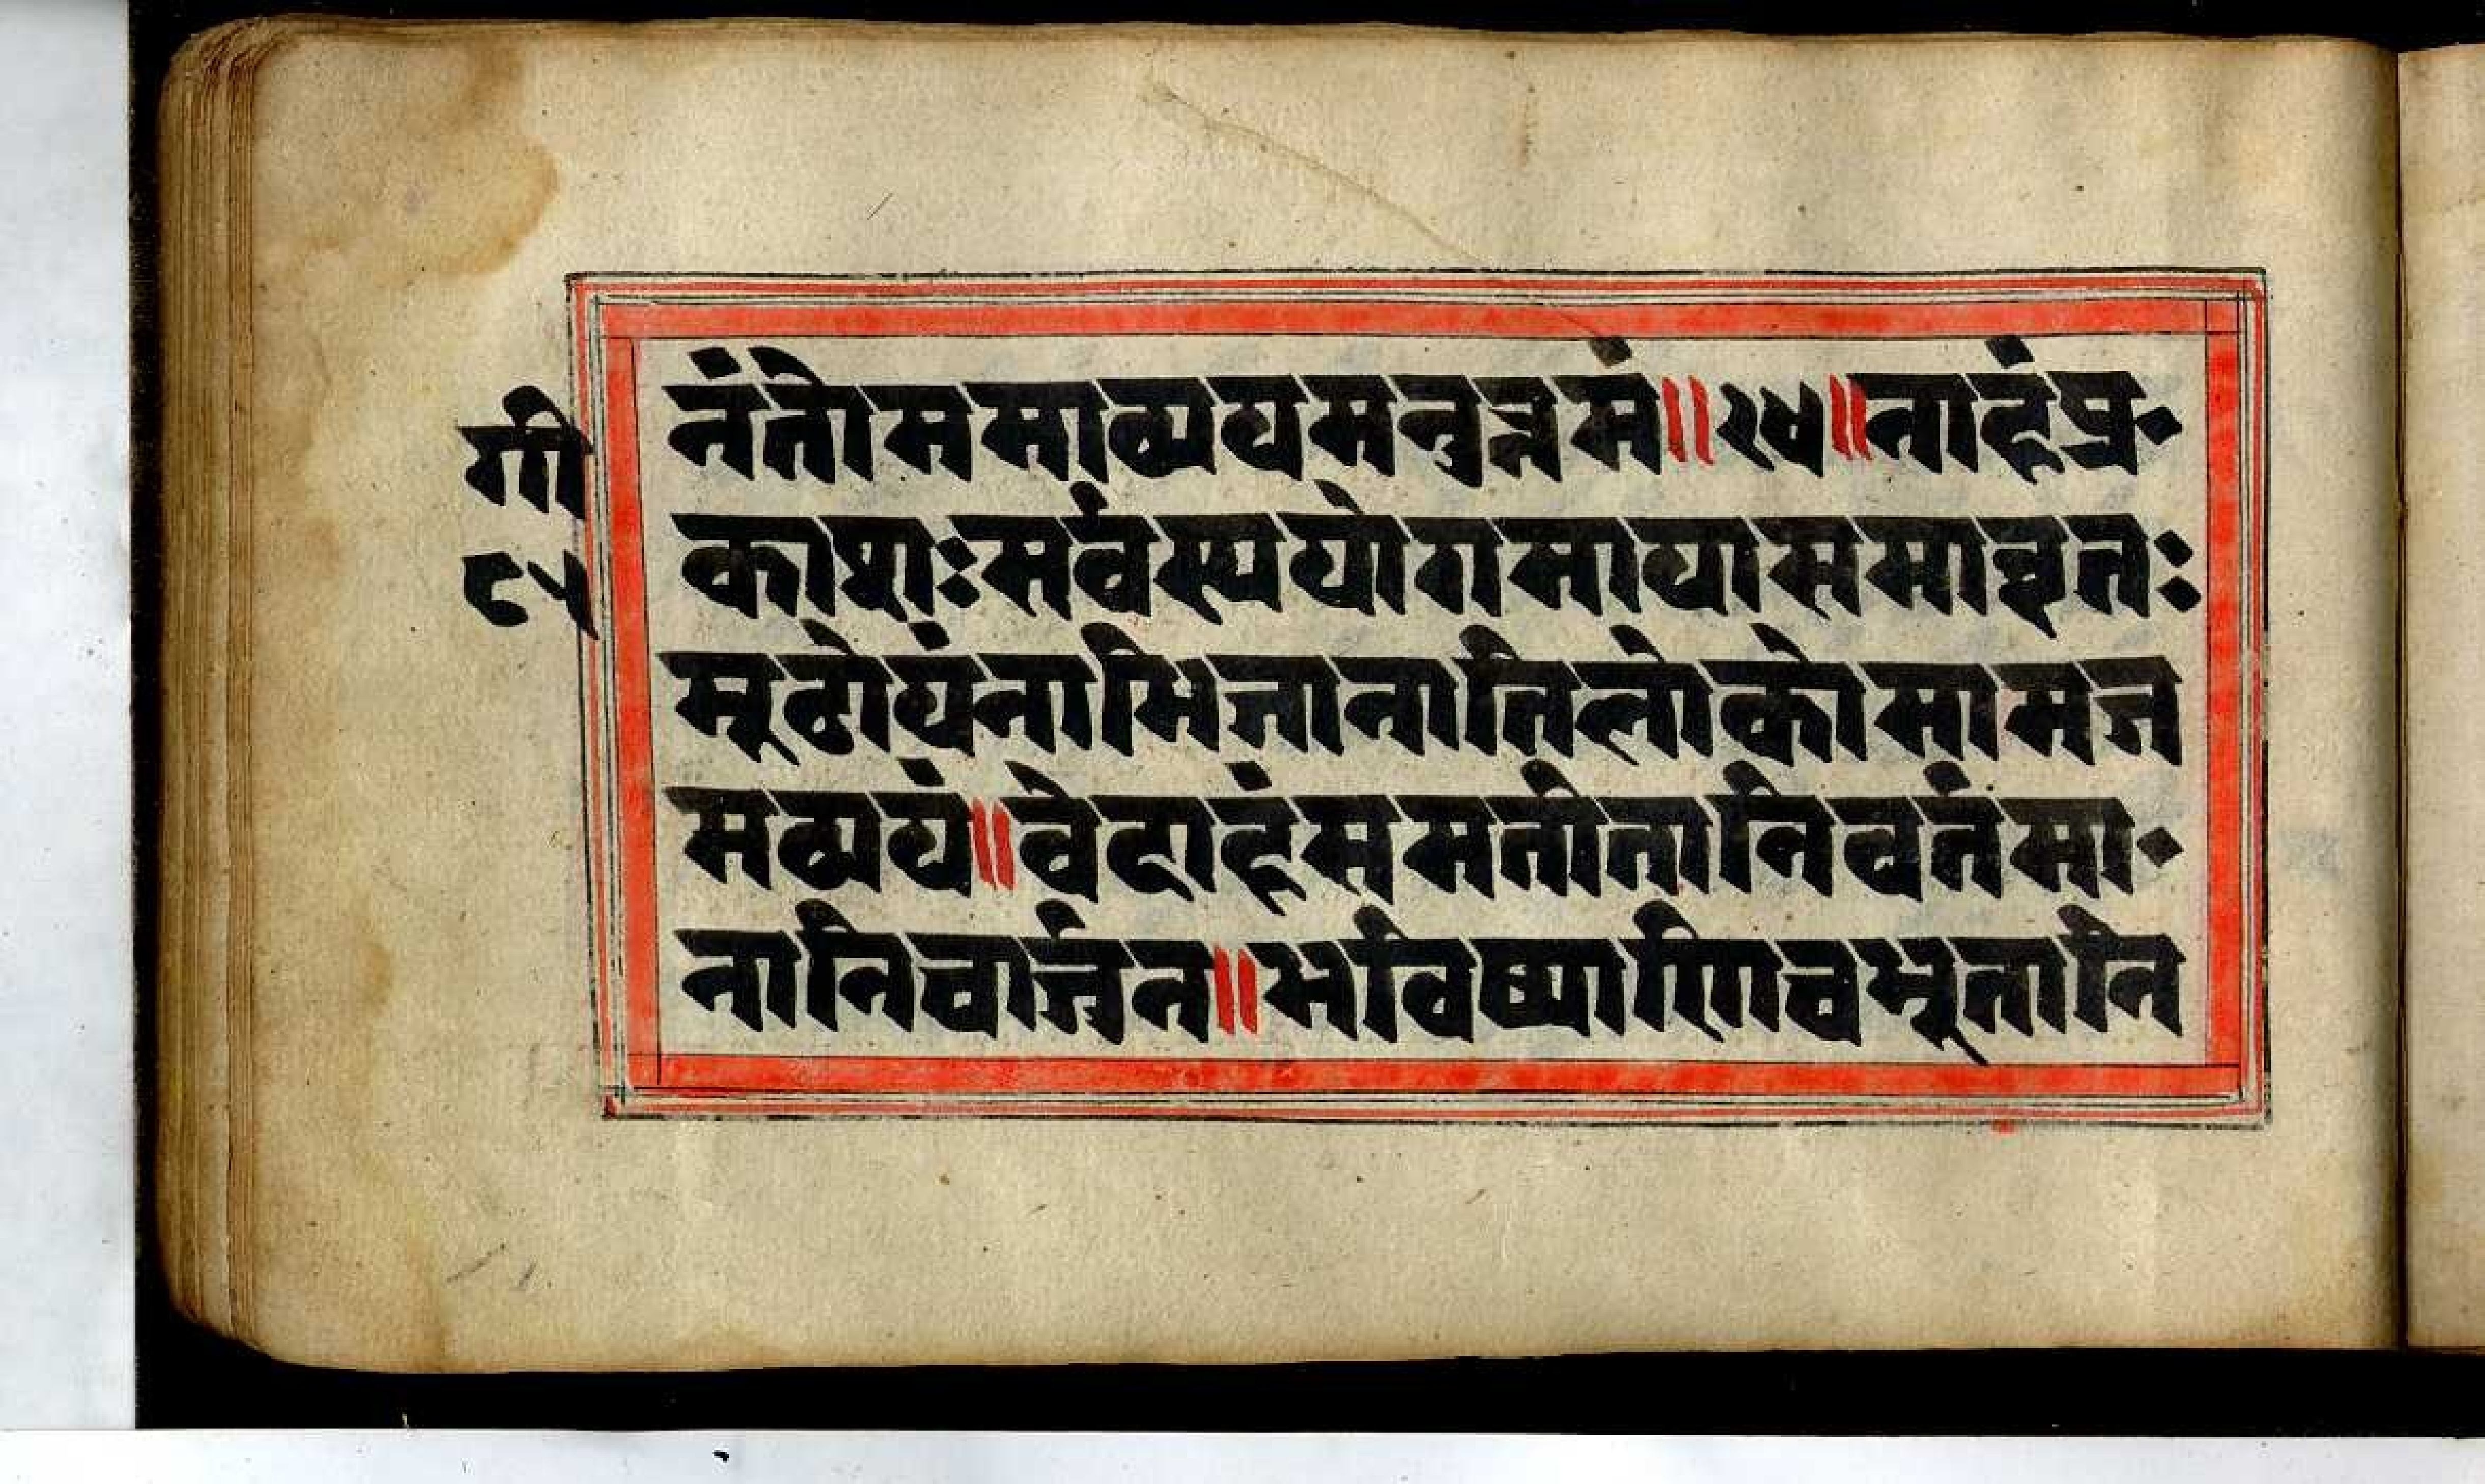 गी
८५
नंतोममाव्ययमनुत्तमं॥२४॥नाहंप्र·
काशःसर्वस्ययोगमायासमावृतः
मूढोयंनाभिजानातिलोकोमामज
मव्ययं॥वेदाहंसमतीतानिवर्तमा·
नानिचार्जुन॥भविष्याणिचभूतानि